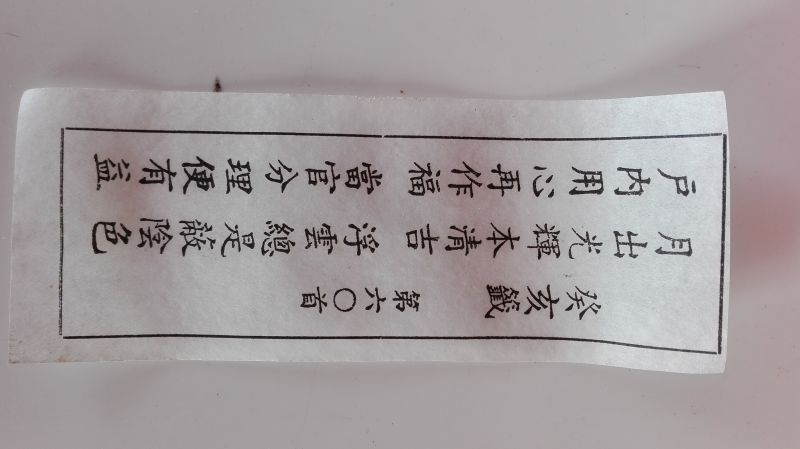 癸亥籤 第六〇首
月出光輝本清吉 浮雲總是蔽陰色
戶內用心再作福 當官分理便有益